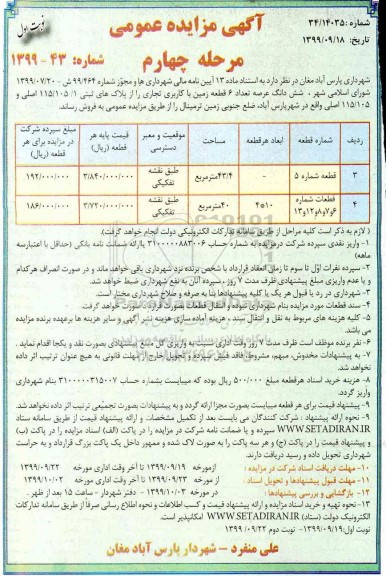 نوبت اول
آگهی مزایده عمومی
شماره: ۳۴/۱۴۰۳۵
تاریخ: ۱۳۹۹/۰۹/۱۸
مرحله چهارم
شماره: ۴۳ - ۱۳۹۹
شهرداری پارس آباد مغان در نظر دارد به استناد ماده ۱۳ آیین نامه مالی شهرداری ها و مجوز شماره ۹۹/۴۶۴ ش - ۱۳۹۹/۰۷/۲۰
شورای اسلامی شهر، شش دانگ عرصه تعداد ۶ قطعه زمین با کاربری تجاری را از پلاک های ثبتی ۱/ ۱۱۵/۱۰۵ اصلی و
۱۱۵/۱۰۵ اصلی واقع در شهر پارس آباد، ضلع جنوبی زمین ترمینال را از طریق مزایده عمومی به فروش رساند.
ردیف شماره قطعه ابعاد هر قطعه مساحت موقعیت و معبر دسترسی قیمت پایه هر قطعه (ریال) مبلغ سپرده شرکت در مزایده برای هر قطعه (ریال)
۳ قطعه شماره ۵ - ۴۳/۴ مترمربع طبق نقشه تفکیکی ۳/۸۴۰/۰۰۰/۰۰۰ ۱۹۲/۰۰۰/۰۰۰
۴ قطعات شماره ۶و۷و۸و۱۲و۱۳ ۱۰*۴ ۴۰ مترمربع طبق نقشه تفکیکی ۳/۷۲۰/۰۰۰/۰۰۰ ۱۸۶/۰۰۰/۰۰۰
( لازم به ذکر است کلیه مراحل از طریق سامانه تدارکات الکترونیکی دولت انجام خواهد گرفت).
۱- واریز نقدی سپرده شرکت در مزایده به شماره حساب ۳۱۰۰۰۰۰۸۸۳۰۰۶ یا ارائه ضمانت نامه بانکی (حداقل با اعتبار سه
ماهه)
۲- سپرده نفرات اول تا سوم تا زمان انعقاد قرارداد با شخص برنده نزد شهرداری باقی خواهد ماند و در صورت انصراف هرکدام
و یا عدم واریزی مبلغ پیشنهادی ظرف مدت ۷ روز، سپرده آنان به نفع شهرداری ضبط خواهد شد.
۳- شهرداری در رد یا قبول هر یک یا کلیه پیشنهادها بنا به صرفه و صلاح شهرداری مختار است.
۴- سند قطعات مورد مزایده بنام شهرداری نبوده و انتقال قطعات بصورت قرارداد صورت خواهد گرفت.
۵- کلیه هزینه های مربوط به نقل و انتقال سند، هزینه آماده سازی هزینه نشر آگهی و سایر هزینه ها بر عهده برنده مزایده
می باشد.
۶- نفر برنده موظف است ظرف مدت ۷ روز وقت اداری نسبت به واریزی کل مبلغ پیشنهادی بصورت نقد و یکجا اقدام نماید.
۷- به پیشنهادات مخدوش، مبهم، مشروط، فاقد فیش سپرده و تحویل خارج از مهلت قانونی به هیچ عنوان ترتیب اثر داده
نخواهد شد.
۸- هزینه خرید اسناد هر قطعه مبلغ ۵۰۰/۰۰۰ ریال بوده که میبایست بشماره حساب ۳۱۰۰۰۰۰۳۱۵۰۰۷ بنام شهرداری
واریز گردد.
۹- پیشنهاد قیمت برای هر قطعه میبایست بصورت مجزا ارائه گردد و به پیشنهادات بصورت تجمیعی ترتیب اثر داده نخواهد شد.
۹- نحوه ارائه پیشنهاد : شرکت کنندگان می بایست بعد از تکمیل مشخصات و ارائه پیشنهاد قیمت از طریق سامانه ستاد
WWW.SETADIRAN.IR سپرده و یا ضمانت نامه شرکت در مزایده را در پاکت (الف) اسناد مزایده را در پاکت (ب)
و پیشنهاد قیمت را در پاکت (ج) و هر سه پاکت را به صورت لاک شده و ممهور داخل یک پاکت بزرگ قرارداد و به حراست
شهرداری تحویل داده و رسید دریافت دارند.
۱۰- مهلت دریافت اسناد شرکت در مزایده : از مورخه ۱۳۹۹/۰۹/۱۹ تا آخر وقت اداری مورخه ۱۳۹۹/۰۹/۲۲
۱۱- مهلت قبول پیشنهادها و تحویل اسناد : از مورخه ۱۳۹۹/۰۹/۲۳ تا آخر وقت اداری مورخه ۱۳۹۹/۱۰/۰۲
۱۲- بازگشایی و بررسی پیشنهادها : در مورخه ۱۳۹۹/۱۰/۰۳ - دفتر شهردار - ساعت ۱۵ بعد از ظهر.
۱۳- نحوه تهیه و خرید اسناد مزایده و ارائه پیشنهاد قیمت و کسب اطلاعات و نحوه اطلاع رسانی صرفاً از طریق سامانه تدارکات
الکترونیک دولت (ستاد) WWW.SETADIRAN.IR امکانپذیر است.
نوبت اول: ۱۳۹۹/۰۹/۱۹- نوبت دوم ۱۳۹۹/۰۹/۲۲
علی منفرد - شهردار پارس آباد مغان